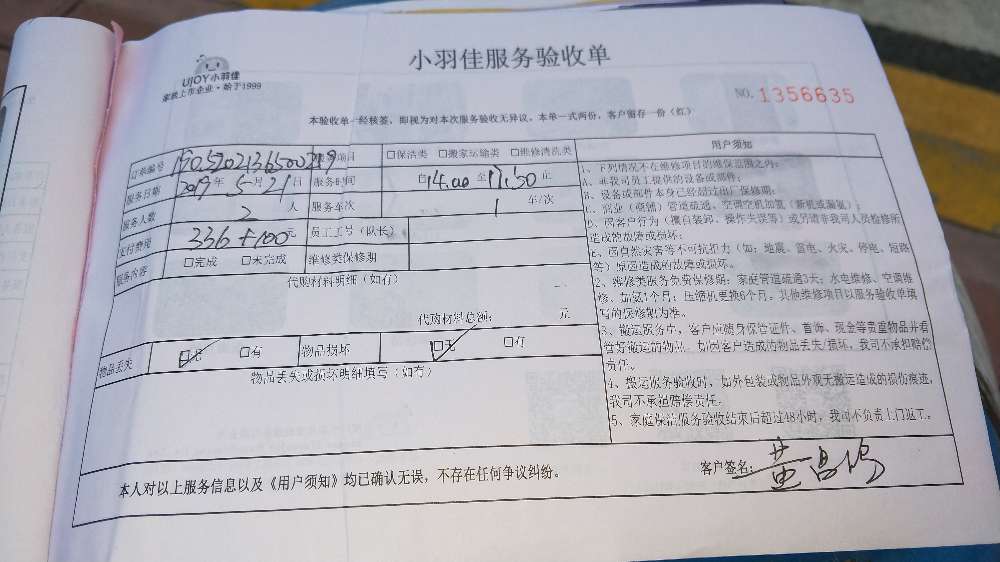 UJOY小羽佳
家族上市企业·始于1999
小羽佳服务验收单
NO. 1356635
本验收单一经核签，即视为对本次服务验收无异议。本单一式两份，客户留存一份（红）
订单编号 服务项目 □保洁类 □搬家运输类 □维修清洗类
服务日期 2019年5月21日 服务时间 自14:00至17:50止
服务人数 2人 服务车次 1车/次
支付费用 336+100元 员工工号（队长）
服务内容 □完成 □未完成 维修类保修期
代购材料明细（如有）
代购材料总额： 元
物品丢失 □无 □有 物品损坏 □无 □有
物品丢失或损坏明细填写（如有）
用户须知
1、下列情况不在维修项目的维保范围之内：
A、非我司员工提供的设备或部件；
B、设备或部件本身已经超过出厂保修期；
C、商业（商铺）管道疏通、空调空机加氟（新机或漏氟）；
D、因客户行为（擅自装卸、操作失误等）或另请非我司人员检修所
造成的故障或损坏；
E、因自然灾害等不可抗拒力（如：地震、雷电、火灾、停电、短路
等）原因造成的故障或损坏。
2、维修类服务免费保修期：家庭管道疏通3天；水电维修、空调维
修、加氟1个月；压缩机更换6个月。其他维修项目以服务验收单填
写的保修期为准。
3、搬运服务中，客户应随身保管证件、首饰、现金等贵重物品并看
管好搬运的物品。如因客户造成的物品丢失/损坏，我司不承担赔偿
责任。
4、搬运服务验收时，如外包装或物品外观无搬运造成的损伤痕迹，
我司不承担赔偿责任。
5、家庭保洁服务验收结束后超过48小时，我司不负责上门返工。
本人对以上服务信息以及《用户须知》均已确认无误，不存在任何争议纠纷。
客户签名：